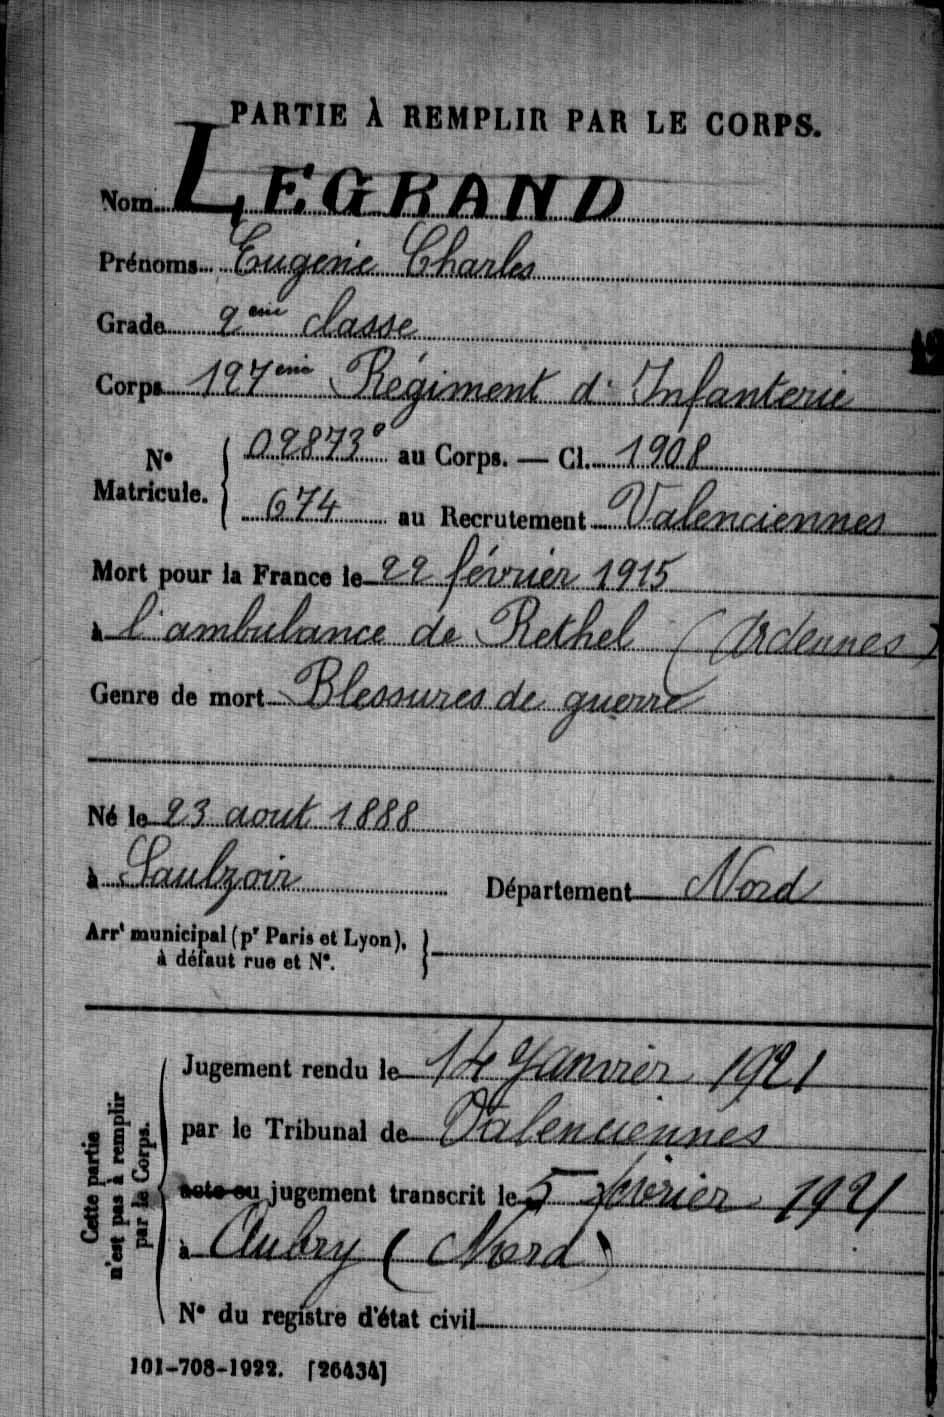 PARTIE À REMPLIR PAR LE CORPS.
Nom LEGRAND
Prénoms Eugène Charles
Grade 2eme classe
Corps 127eme Régiment d'Infanterie
No Matricule. { 09873° au Corps. — Cl. 1908
674 au Recrutement Valenciennes
Mort pour la France le 22 février 1915
à l'ambulance de Rethel (Ardennes)
Genre de mort Blessures de guerre
Né le 23 aout 1888
à Saulzoir Département Nord
Arrt municipal (pr Paris et Lyon), à défaut rue et No. }
Cette partie n'est pas à remplir par le Corps.
Jugement rendu le 14 Janvier 1921
par le Tribunal de Valenciennes
acte ou jugement transcrit le 5 février 1921
à Aubry (Nord)
No du registre d'état civil
101-708-1922. [26434]